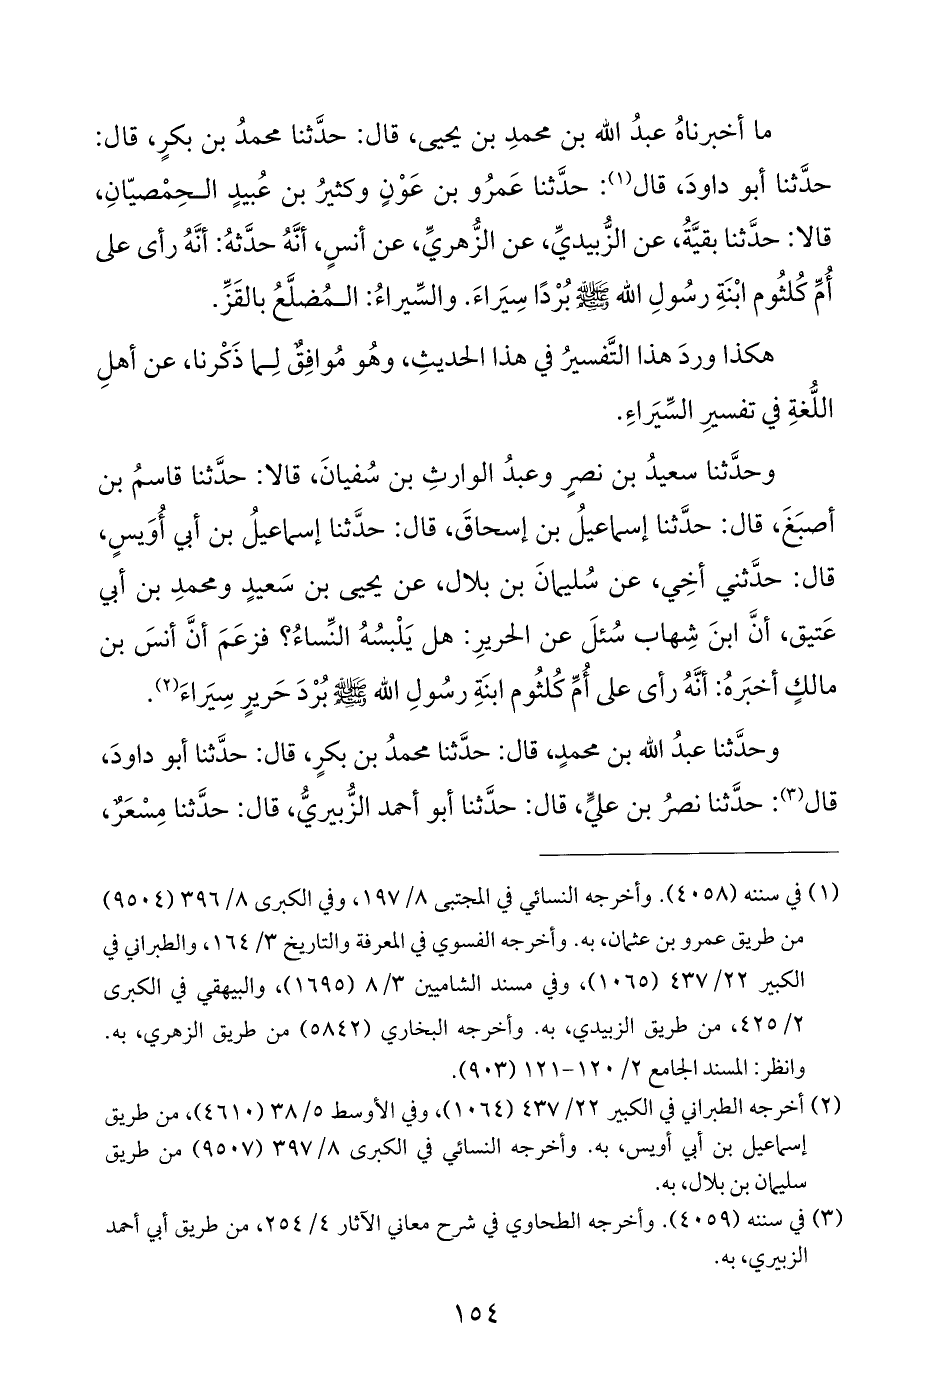 ما أخبرناهُ عبدُ الله بن محمدِ بن يحيى، قال: حدَّثنا محمدُ بن بكرٍ، قال:
حدَّثنا أبو داودَ، قال(١): حدَّثنا عَمرُو بن عَوْنٍ وكثيرُ بن عُبيدٍ الـحِمْصيّانِ،
قالا: حدَّثنا بقيَّةُ، عن الزُّبيديِّ، عن الزُّهريِّ، عن أنسٍ، أنَّهُ حدَّثهُ: أنَّهُ رأى على
أُمِّ كُلثُوم ابْنَةِ رسُولِ الله ﷺ بُرْدًا سِيَراءَ. والسِّيراءُ: الـمُضلَّعُ بالقَزِّ.
هكذا وردَ هذا التَّفسيرُ في هذا الحديثِ، وهُو مُوافِقٌ لِـما ذَكَرنا، عن أهلِ
اللُّغةِ في تفسيرِ السِّيَراءِ.
وحدَّثنا سعيدُ بن نصرٍ وعبدُ الوارثِ بن سُفيانَ، قالا: حدَّثنا قاسمُ بن
أصبَغَ، قال: حدَّثنا إسماعيلُ بن إسحاقَ، قال: حدَّثنا إسماعيلُ بن أبي أُوَيسٍ،
قال: حدَّثني أخِي، عن سُليمانَ بن بلال، عن يحيى بن سَعيدٍ ومحمدِ بن أبي
عَتيق، أنَّ ابنَ شِهاب سُئلَ عن الحريرِ: هل يَلْبسُهُ النِّساءُ؟ فزعَمَ أنَّ أنسَ بن
مالكٍ أخبَرهُ: أنَّهُ رأى على أُمِّ كُلثُوم ابنَةِ رسُولِ الله ﷺ بُرْدَ حَريرٍ سِيَراءَ(٢).
وحدَّثنا عبدُ الله بن محمدٍ، قال: حدَّثنا محمدُ بن بكرٍ، قال: حدَّثنا أبو داودَ،
قال(٣): حدَّثنا نصرُ بن عليٍّ، قال: حدَّثنا أبو أحمد الزُّبيريُّ، قال: حدَّثنا مِسْعَرٌ،
(١) في سننه (٤٠٥٨). وأخرجه النسائي في المجتبى ٨/ ١٩٧، وفي الكبرى ٨/ ٣٩٦ (٩٥٠٤)
من طريق عمرو بن عثمان، به. وأخرجه الفسوي في المعرفة والتاريخ ٣/ ١٦٤، والطبراني في
الكبير ٢٢/ ٤٣٧ (١٠٦٥)، وفي مسند الشاميين ٣/ ٨ (١٦٩٥)، والبيهقي في الكبرى
٢/ ٤٢٥، من طريق الزبيدي، به. وأخرجه البخاري (٥٨٤٢) من طريق الزهري، به.
وانظر: المسند الجامع ٢/ ١٢٠-١٢١ (٩٠٣).
(٢) أخرجه الطبراني في الكبير ٢٢/ ٤٣٧ (١٠٦٤)، وفي الأوسط ٥/ ٣٨ (٤٦١٠)، من طريق
إسماعيل بن أبي أويس، به. وأخرجه النسائي في الكبرى ٨/ ٣٩٧ (٩٥٠٧) من طريق
سليمان بن بلال، به.
(٣) في سننه (٤٠٥٩). وأخرجه الطحاوي في شرح معاني الآثار ٤/ ٢٥٤، من طريق أبي أحمد
الزبيري، به.
١٥٤